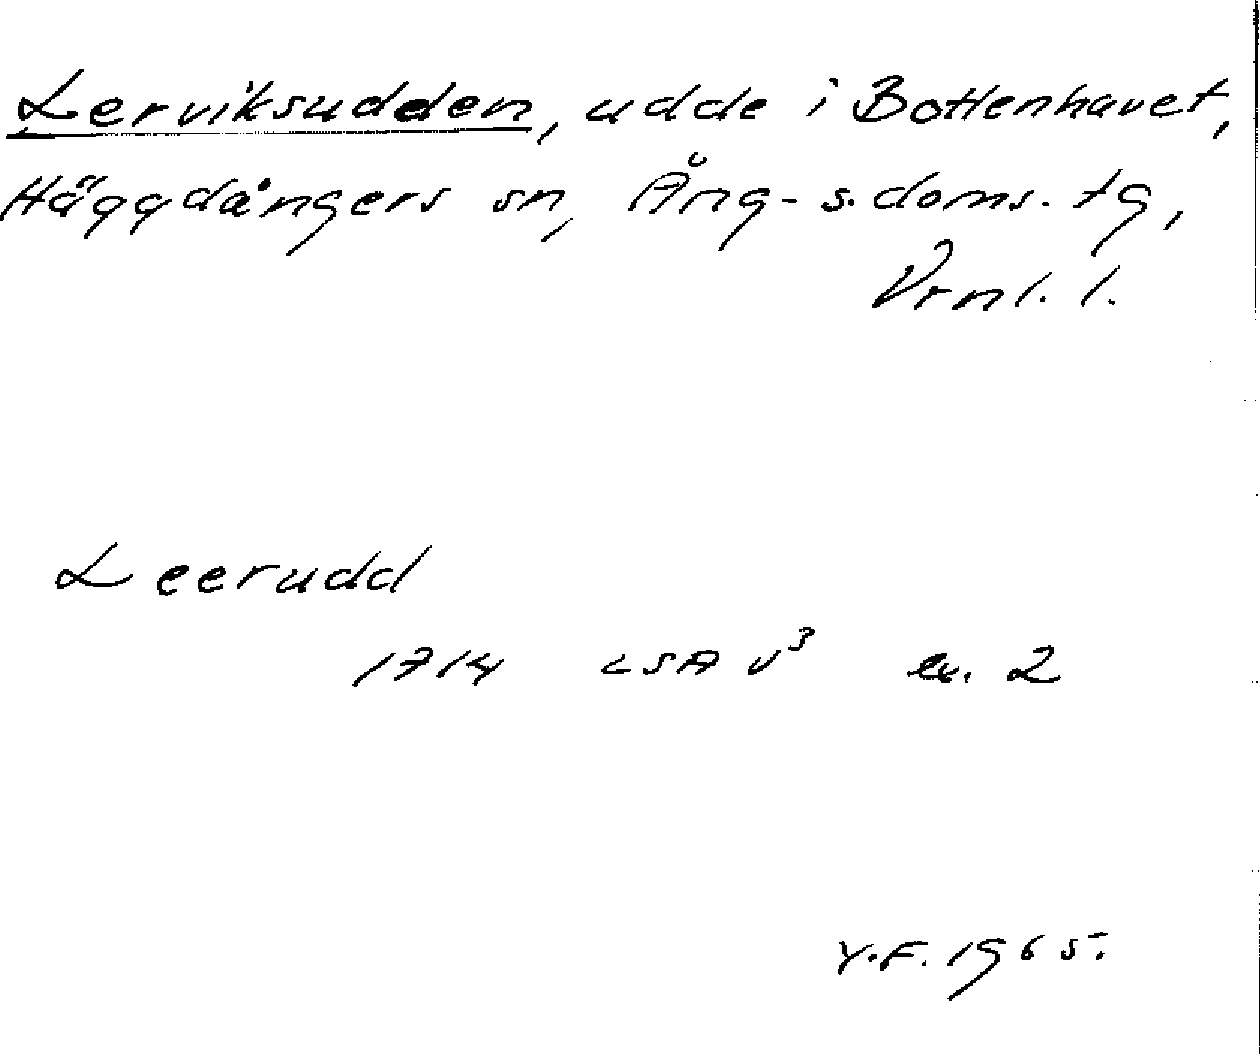 Lerviksudden, udde i Bottenhavet,
Häggdångers sn, Ång-s. doms. tg,
Vrnl. l.
Leerudd
1714 LSA V³ ex. 2
Y.F. 1965.